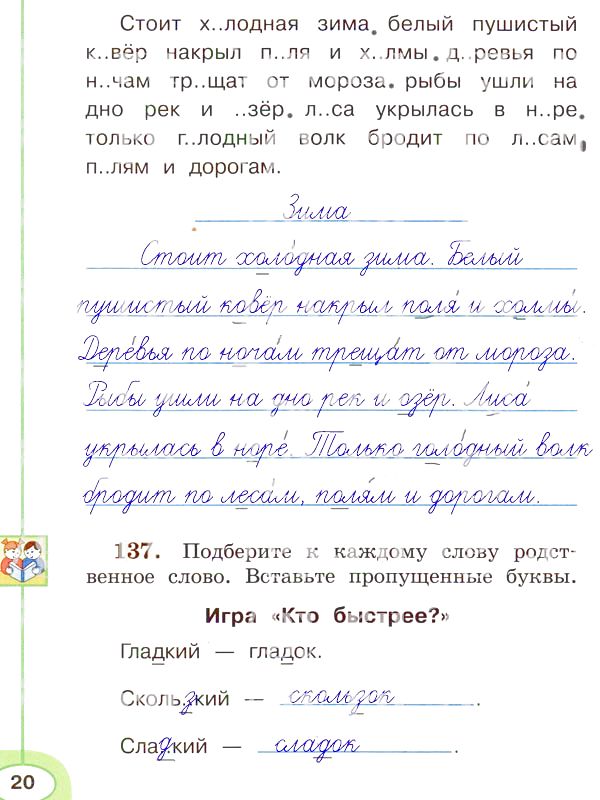 Стоит х..лодная зима. белый пушистый
к..вёр накрыл п..ля и х..лмы. д..ревья по
н..чам тр..щат от мороза. рыбы ушли на
дно рек и ..зёр. л..са укрылась в н..ре.
только г..лодный волк бродит по л..сам,
п..лям и дорогам.
Зима
Стоит холо́дная зима. Белый
пушистый ковёр накрыл поля́ и холмы́.
Дере́вья по ноча́м треща́т от мороза.
Рыбы ушли на дно рек и озёр. Лиса́
укрылась в норе́. Только голо́дный волк
бродит по леса́м, поля́м и дорогам.
137. Подберите к каждому слову родст-
венное слово. Вставьте пропущенные буквы.
Игра «Кто быстрее?»
Гладкий — гладок.
Скользкий — скользок.
Сладкий — сладок.
20